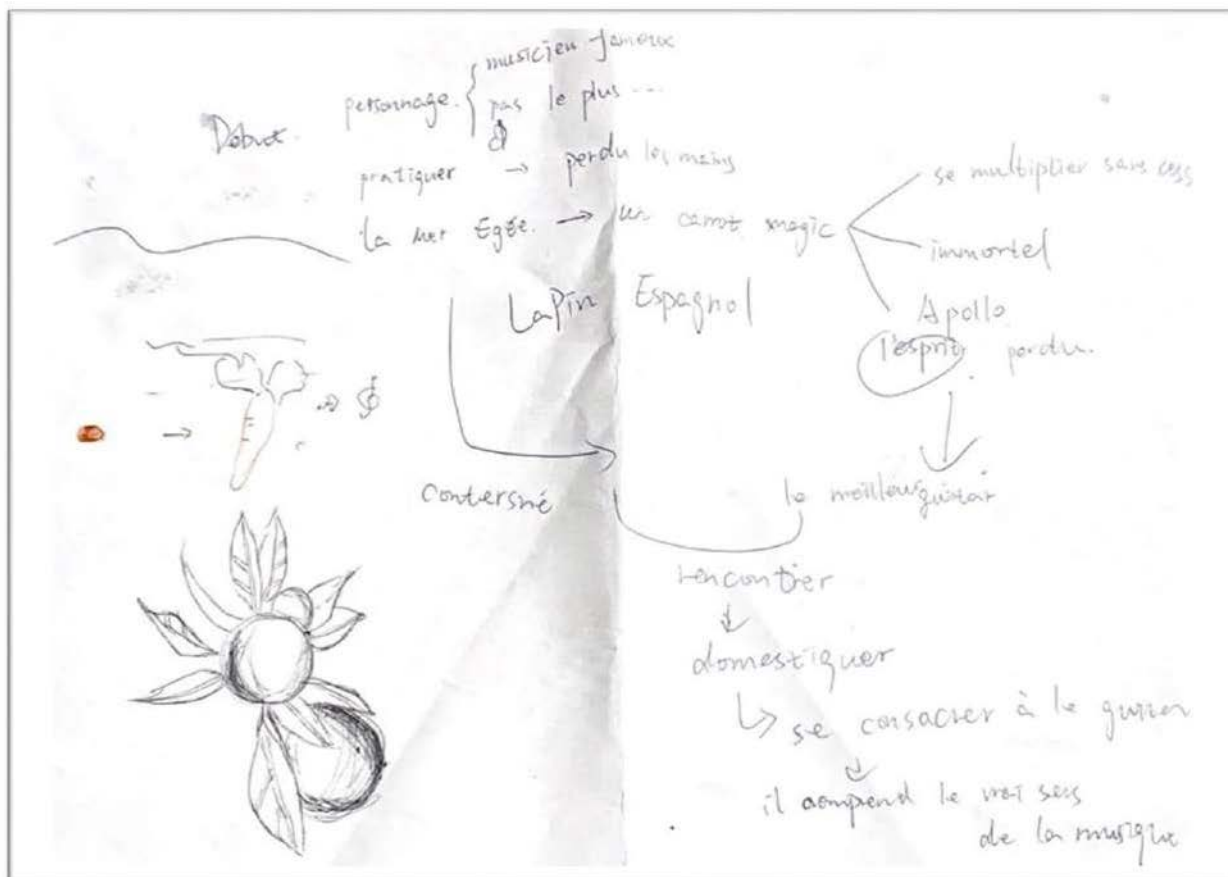 musicien fameux
personnage.
pas le plus ...
Début.
pratiquer → perdu les mains
la mer Egée. → un carrot magic
se multiplier sans cess
immortel
Apollo
l'esprit perdu.
LaPin Espagnol
le meilleur guitar
rencontrer
domestiquer
se consacrer à le
il comprend le vrai sens
de la musique